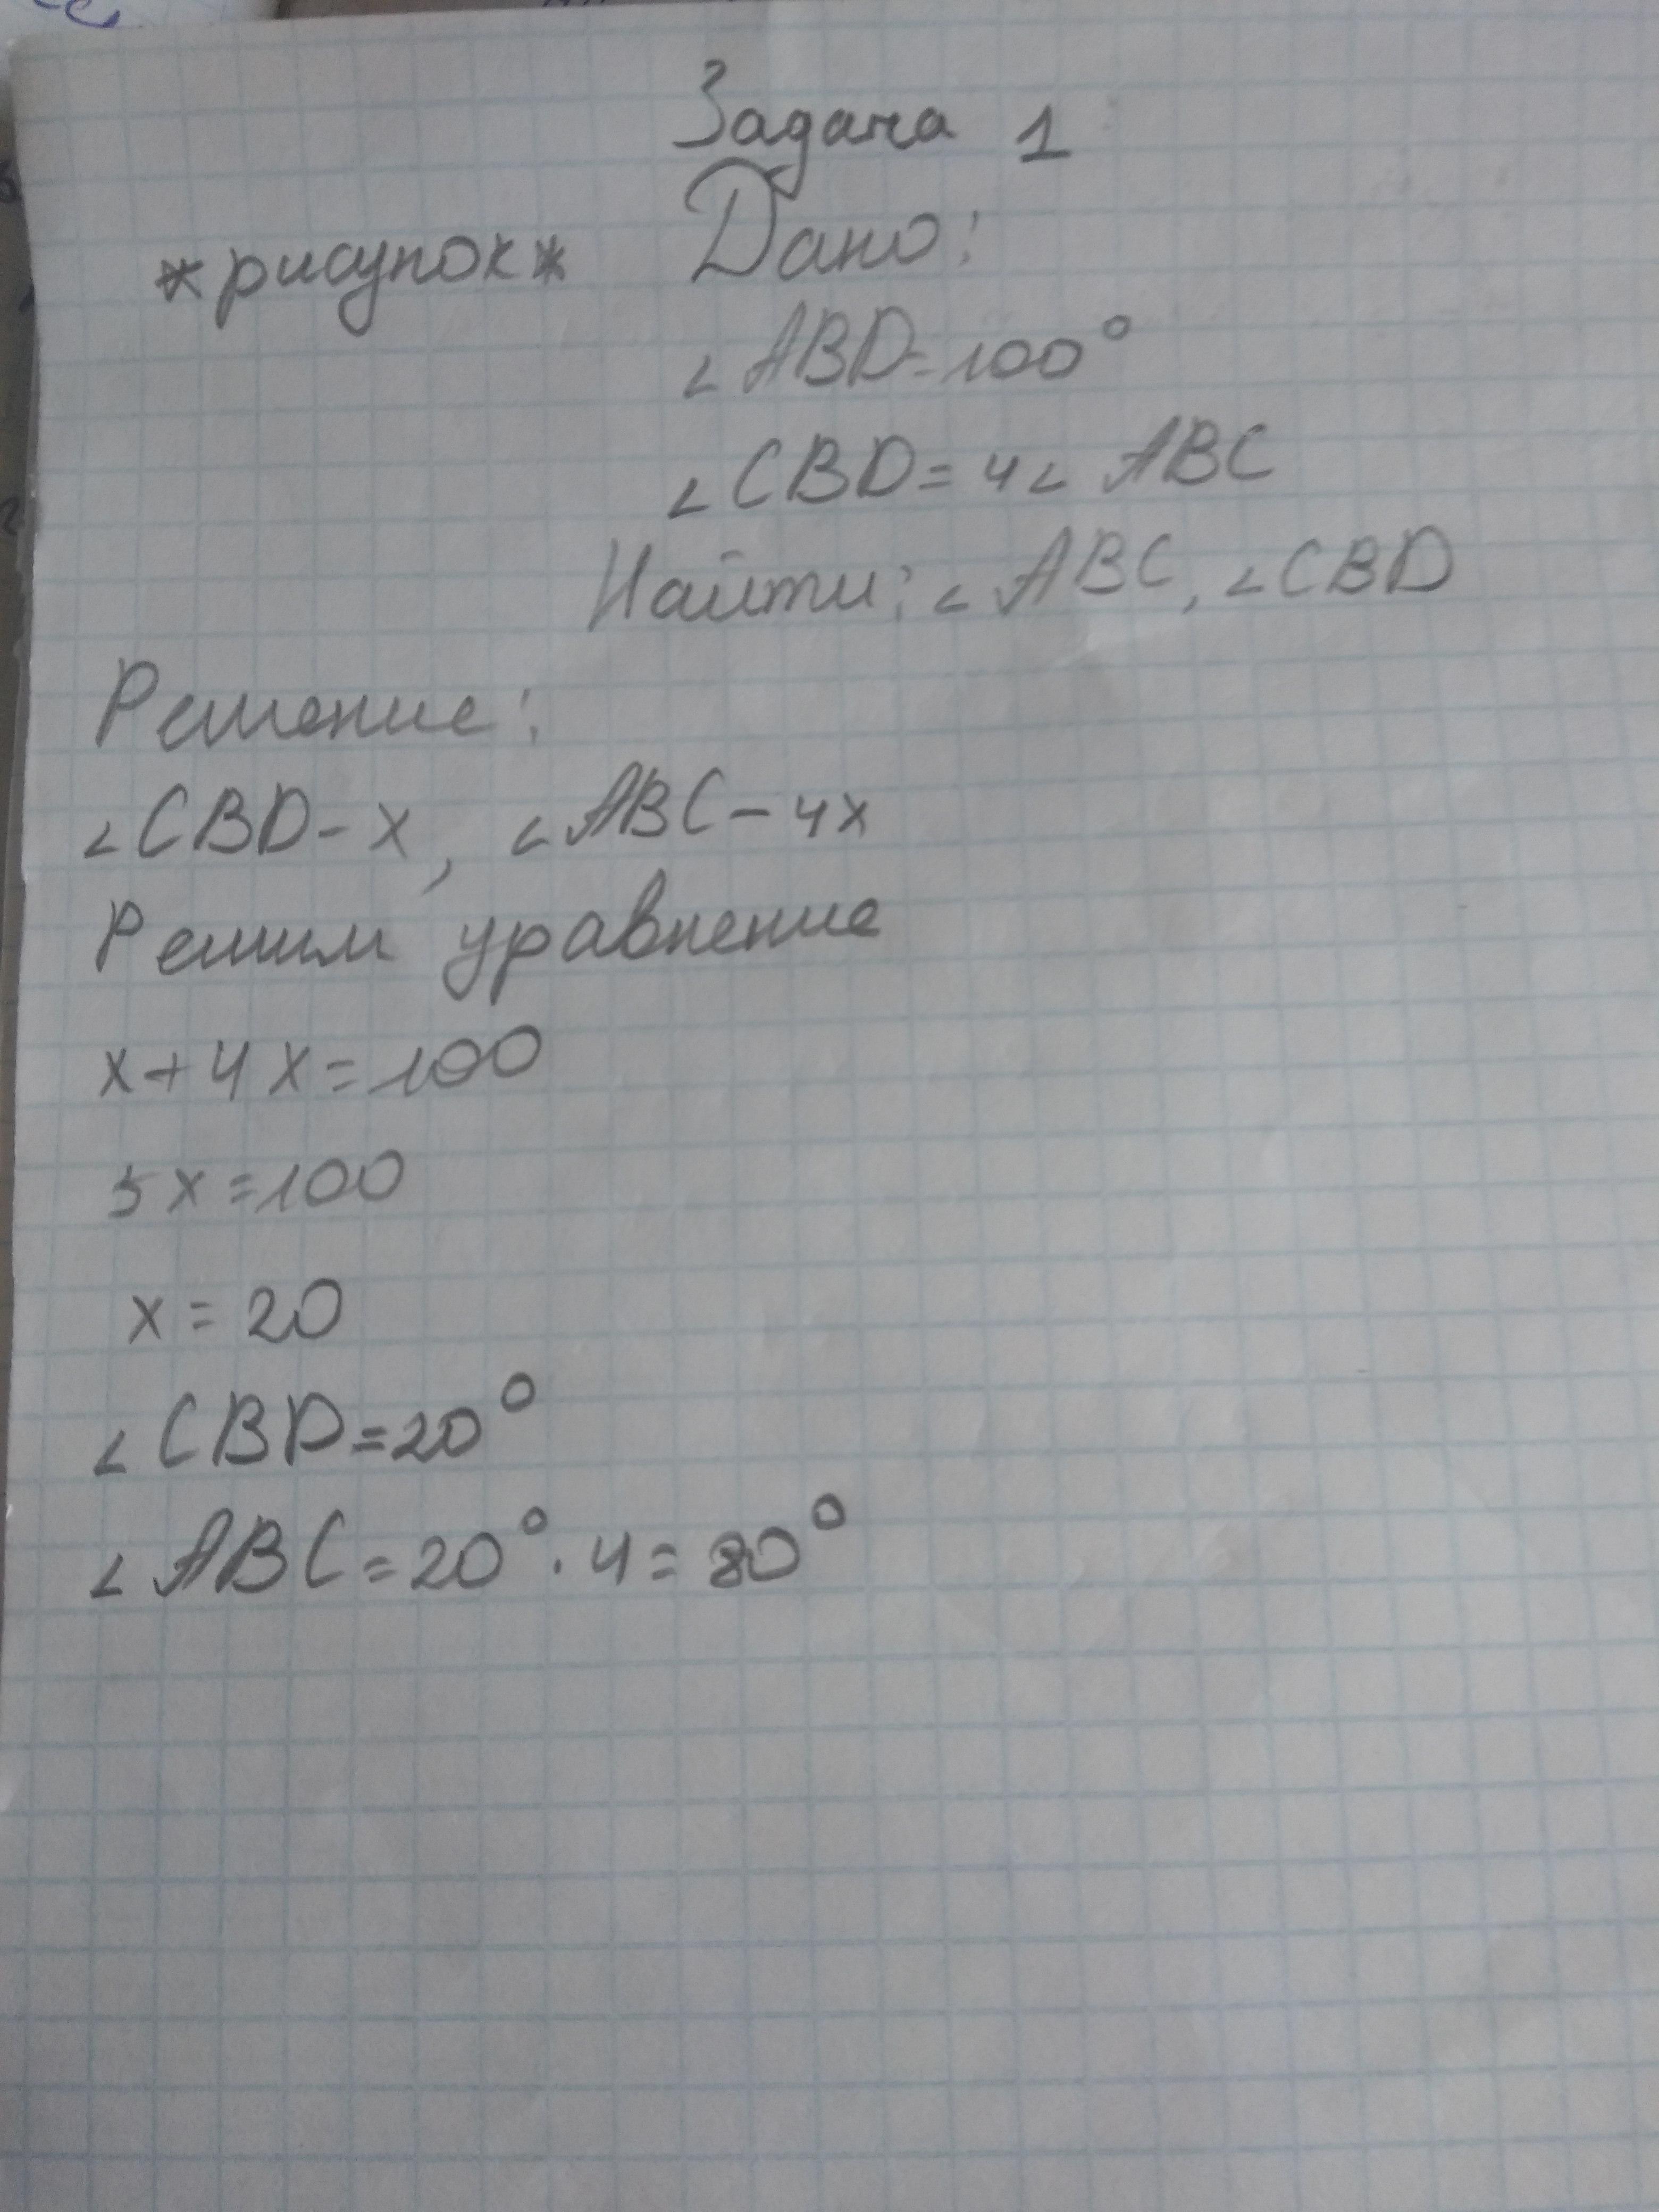 Задача 1
*рисунок* Дано:
∠ABD=100°
∠CBD=4∠ABC
Найти: ∠ABC, ∠CBD
Решение:
∠CBD-x, ∠ABC-4x
Решим уравнение
x+4x=100
5x=100
x=20
∠CBD=20°
∠ABC=20°·4=80°